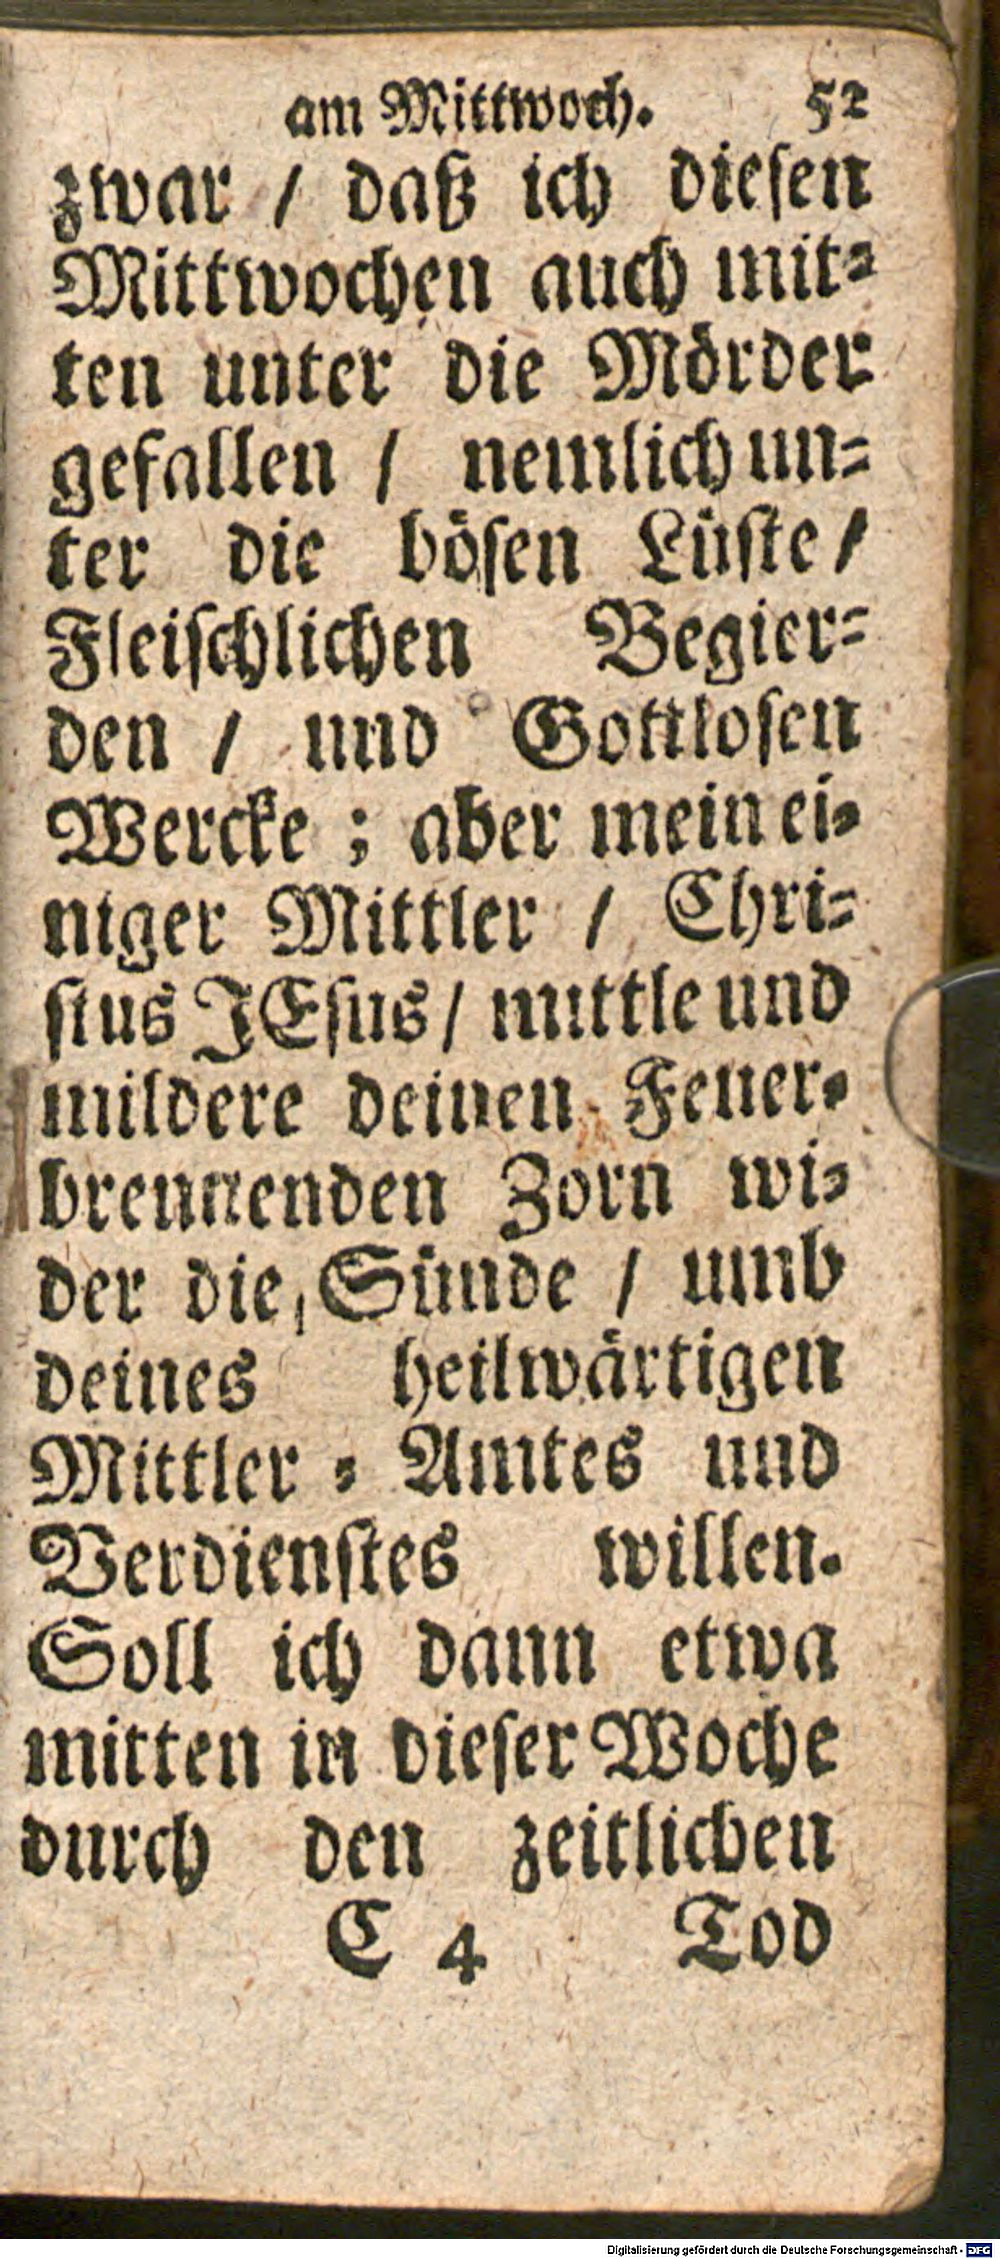 am Mittwoch. 52
zwar / daß ich diesen
Mittwochen auch mit⸗
ten unter die Mörder
gefallen / nemlich un⸗
ter die bösen Lüste /
Fleischlichen Begier⸗
den / und Gottlosen
Wercke ; aber mein ei⸗
niger Mittler / Chri⸗
stus JEsus / mittle und
mildere deinen Feuer⸗
brennenden Zorn wi⸗
der die Sünde / umb
deines heilwärtigen
Mittler ⸗ Amtes und
Verdienstes willen.
Soll ich dann etwa
mitten in dieser Woche
durch den zeitlichen
C 4 Tod
Digitalisierung gefördert durch die Deutsche Forschungsgemeinschaft - DFG